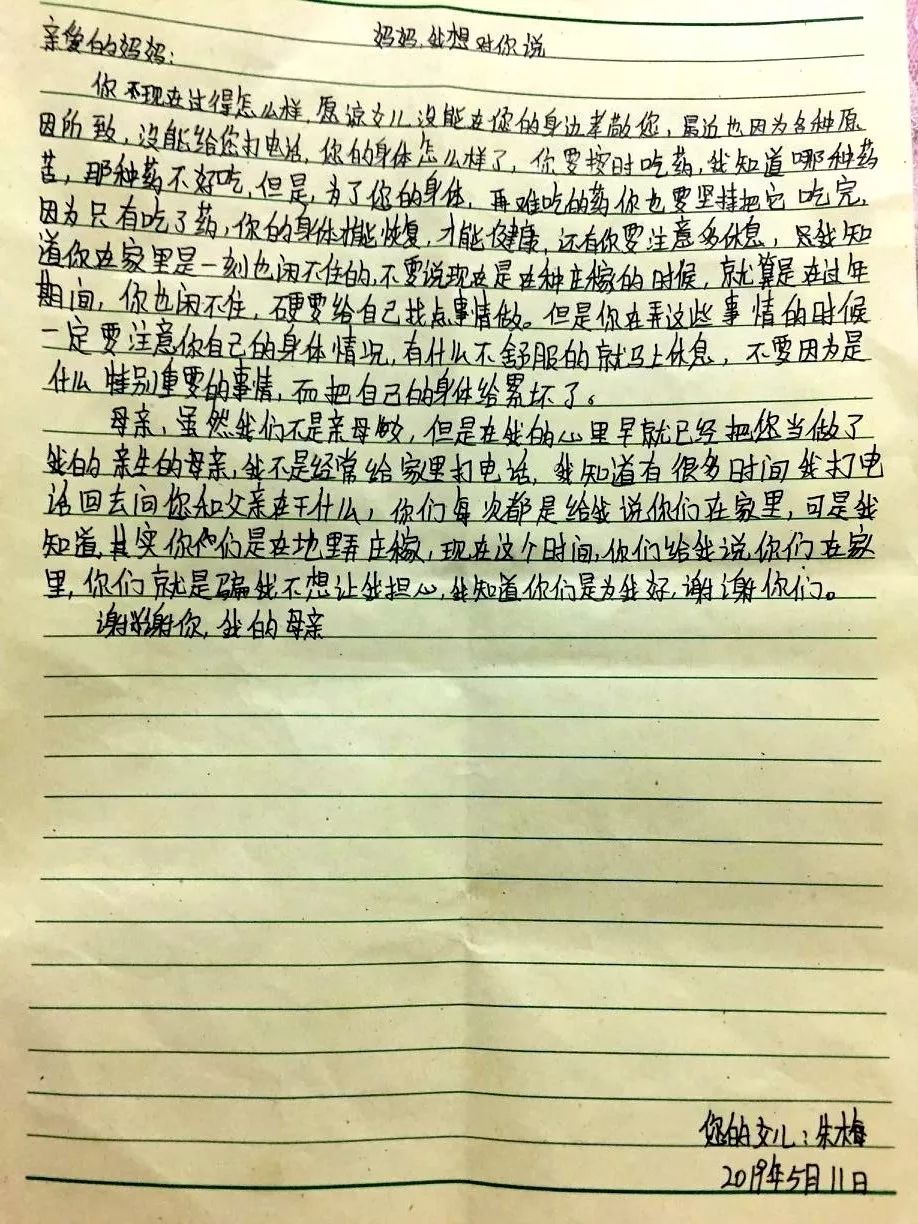 妈妈,我想对你说
亲爱的妈妈:
你现在过得怎么样,原谅女儿没能在您的身边孝敬您,最近也因为各种原
因所致,没能给您打电话,你的身体怎么样了,你要按时吃药,我知道哪种药
苦,那种药不好吃,但是,为了您的身体,再难吃的药你也要坚持把它吃完,
因为只有吃了药,你的身体才能恢复,才能健康,还有你要注意多休息,我知
道你在家里是一刻也闲不住的,不要说现在是在种庄稼的时候,就算是在过年
期间,你也闲不住,硬要给自己找点事情做。但是你在弄这些事情的时候
一定要注意你自己的身体情况,有什么不舒服的就马上休息,不要因为是
什么特别重要的事情,而把自己的身体给累坏了。
母亲,虽然我们不是亲母女,但是在我的心里早就已经把您当做了
我的亲生的母亲,我不是经常给家里打电话,我知道有很多时间我打电
话回去问您和父亲在干什么,你们每次都是给我说你们在家里,可是我
知道,其实你们是在地里弄庄稼,现在这个时间,你们给我说你们在家
里,你们就是骗我不想让我担心,我知道你们是为我好,谢谢你们。
谢谢你,我的母亲
您的女儿:朱梅
2019年5月11日